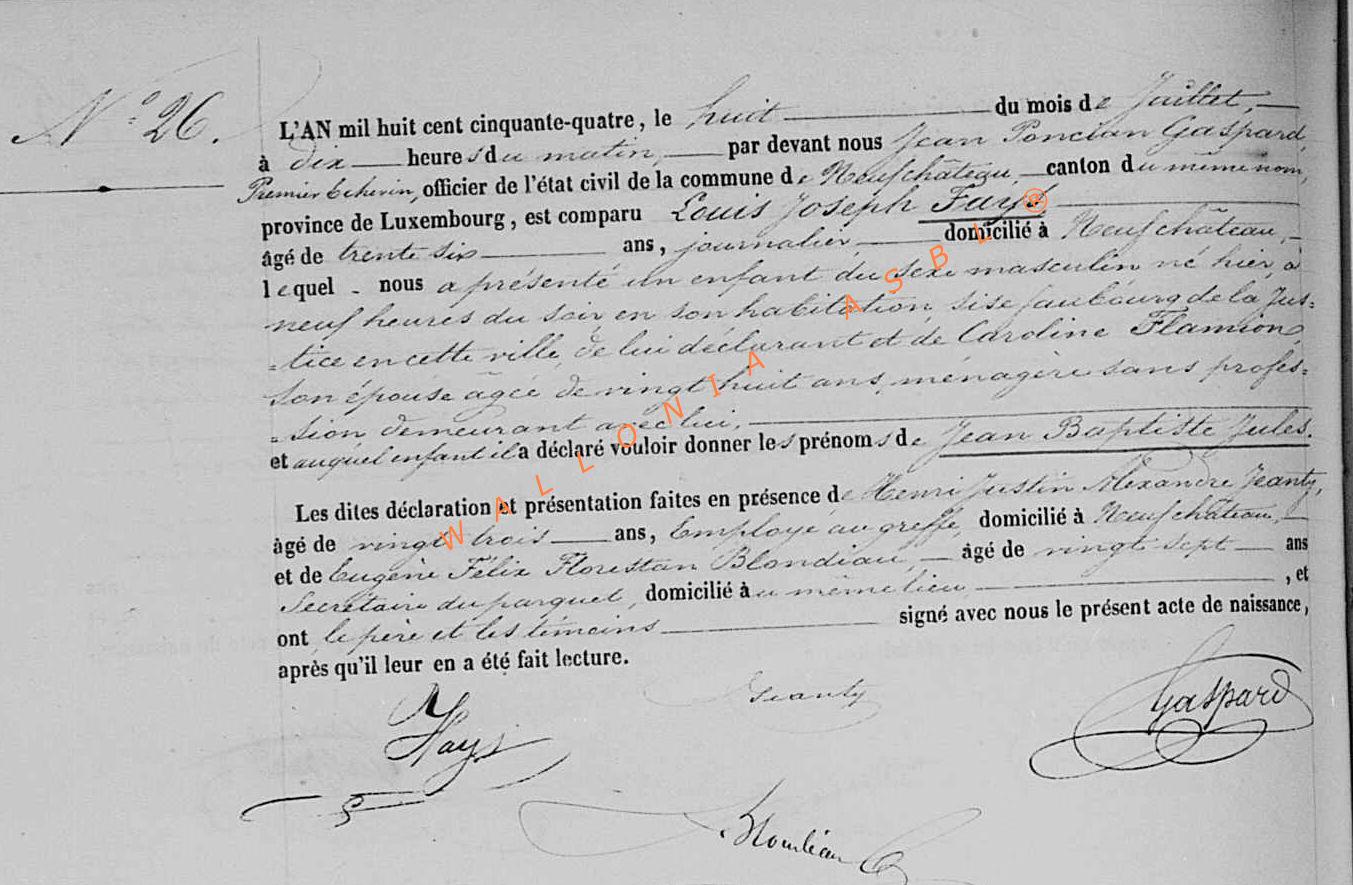 N° 26.
L'AN mil huit cent cinquante-quatre, le huit du mois de Juillet,
à dix heures du matin, par devant nous Jean Poncian Gaspard,
Premier Echevin, officier de l'état civil de la commune de Neufchâteau, canton du même nom,
province de Luxembourg, est comparu Louis Joseph Fays ®
âgé de trente six ans, journalier domicilié à Neufchâteau,
lequel nous a présenté un enfant du sexe masculin né hier, à
neuf heures du soir en son habitation, sise faubourg de la Jus=
=tice en cette ville, de lui déclarant et de Caroline Flamion,
son épouse âgée de vingt huit ans, ménagère sans profes=
=sion demeurant avec lui,
et auquel enfant il a déclaré vouloir donner les prénoms de Jean Baptiste Jules.
Les dites déclaration et présentation faites en présence de Henri Justin Alexandre Jeanty,
âgé de vingt trois ans, Employé au greffe, domicilié à Neufchâteau,
et de Eugène Félix Florestan Blondiau, âgé de vingt sept ans
Secrétaire du parquet, domicilié au même lieu, , et
ont le père et les témoins signé avec nous le présent acte de naissance,
après qu'il leur en a été fait lecture.
Fays Jeanty Gaspard
Blondiau
WALLONIA ASBL